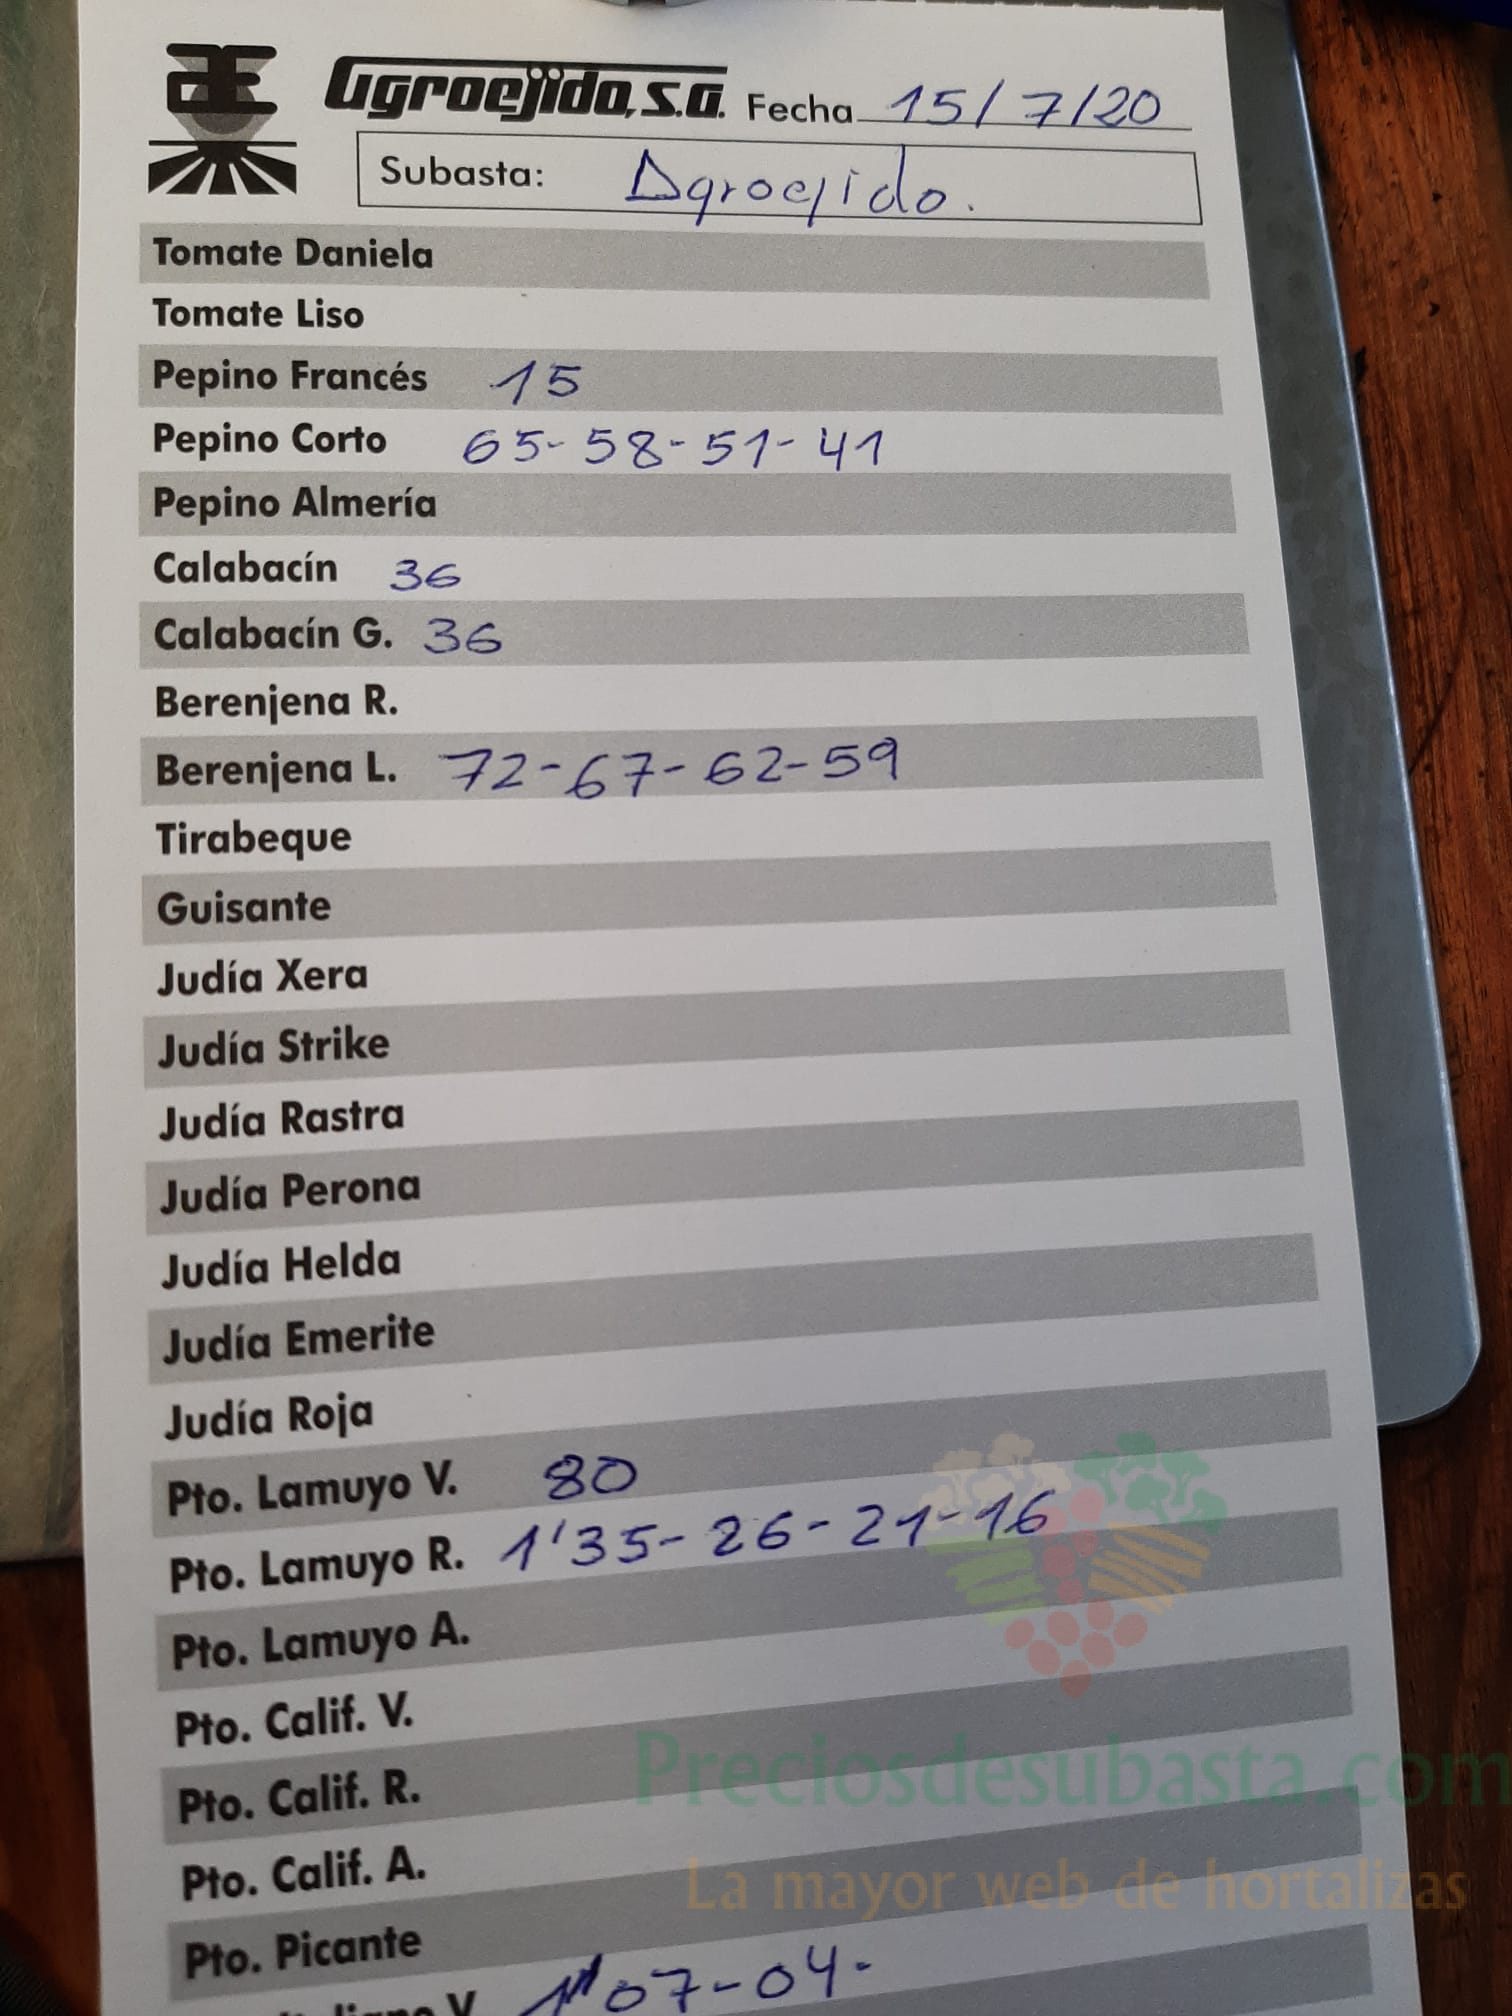 Agroejido, S.A. Fecha 15/7/20
Subasta: Agroejido.
Tomate Daniela
Tomate Liso
Pepino Francés 15
Pepino Corto 65-58-51-41
Pepino Almería
Calabacín 36
Calabacín G. 36
Berenjena R.
Berenjena L. 72-67-62-59
Tirabeque
Guisante
Judía Xera
Judía Strike
Judía Rastra
Judía Perona
Judía Helda
Judía Emerite
Judía Roja
Pto. Lamuyo V. 80
Pto. Lamuyo R. 1'35-26-21-16
Pto. Lamuyo A.
Pto. Calif. V.
Pto. Calif. R.
Preciosdesubasta.com
Pto. Calif. A.
La mayor web de hortalizas
Pto. Picante
V. 1'07-04-